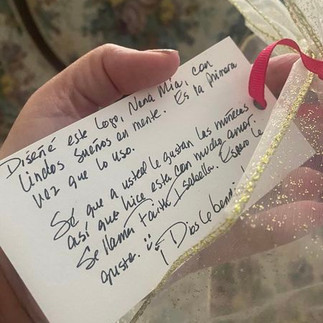 Diseñé este Lovey, Nena Mía, con
lindos sueños en mente. Es la primera
vez que lo uso.
Sé que a usted le gustan las muñecas
así que hice esta con mucho amor.
Se llama Faith Isabella. Espero le
guste. ¡Dios le bendiga!